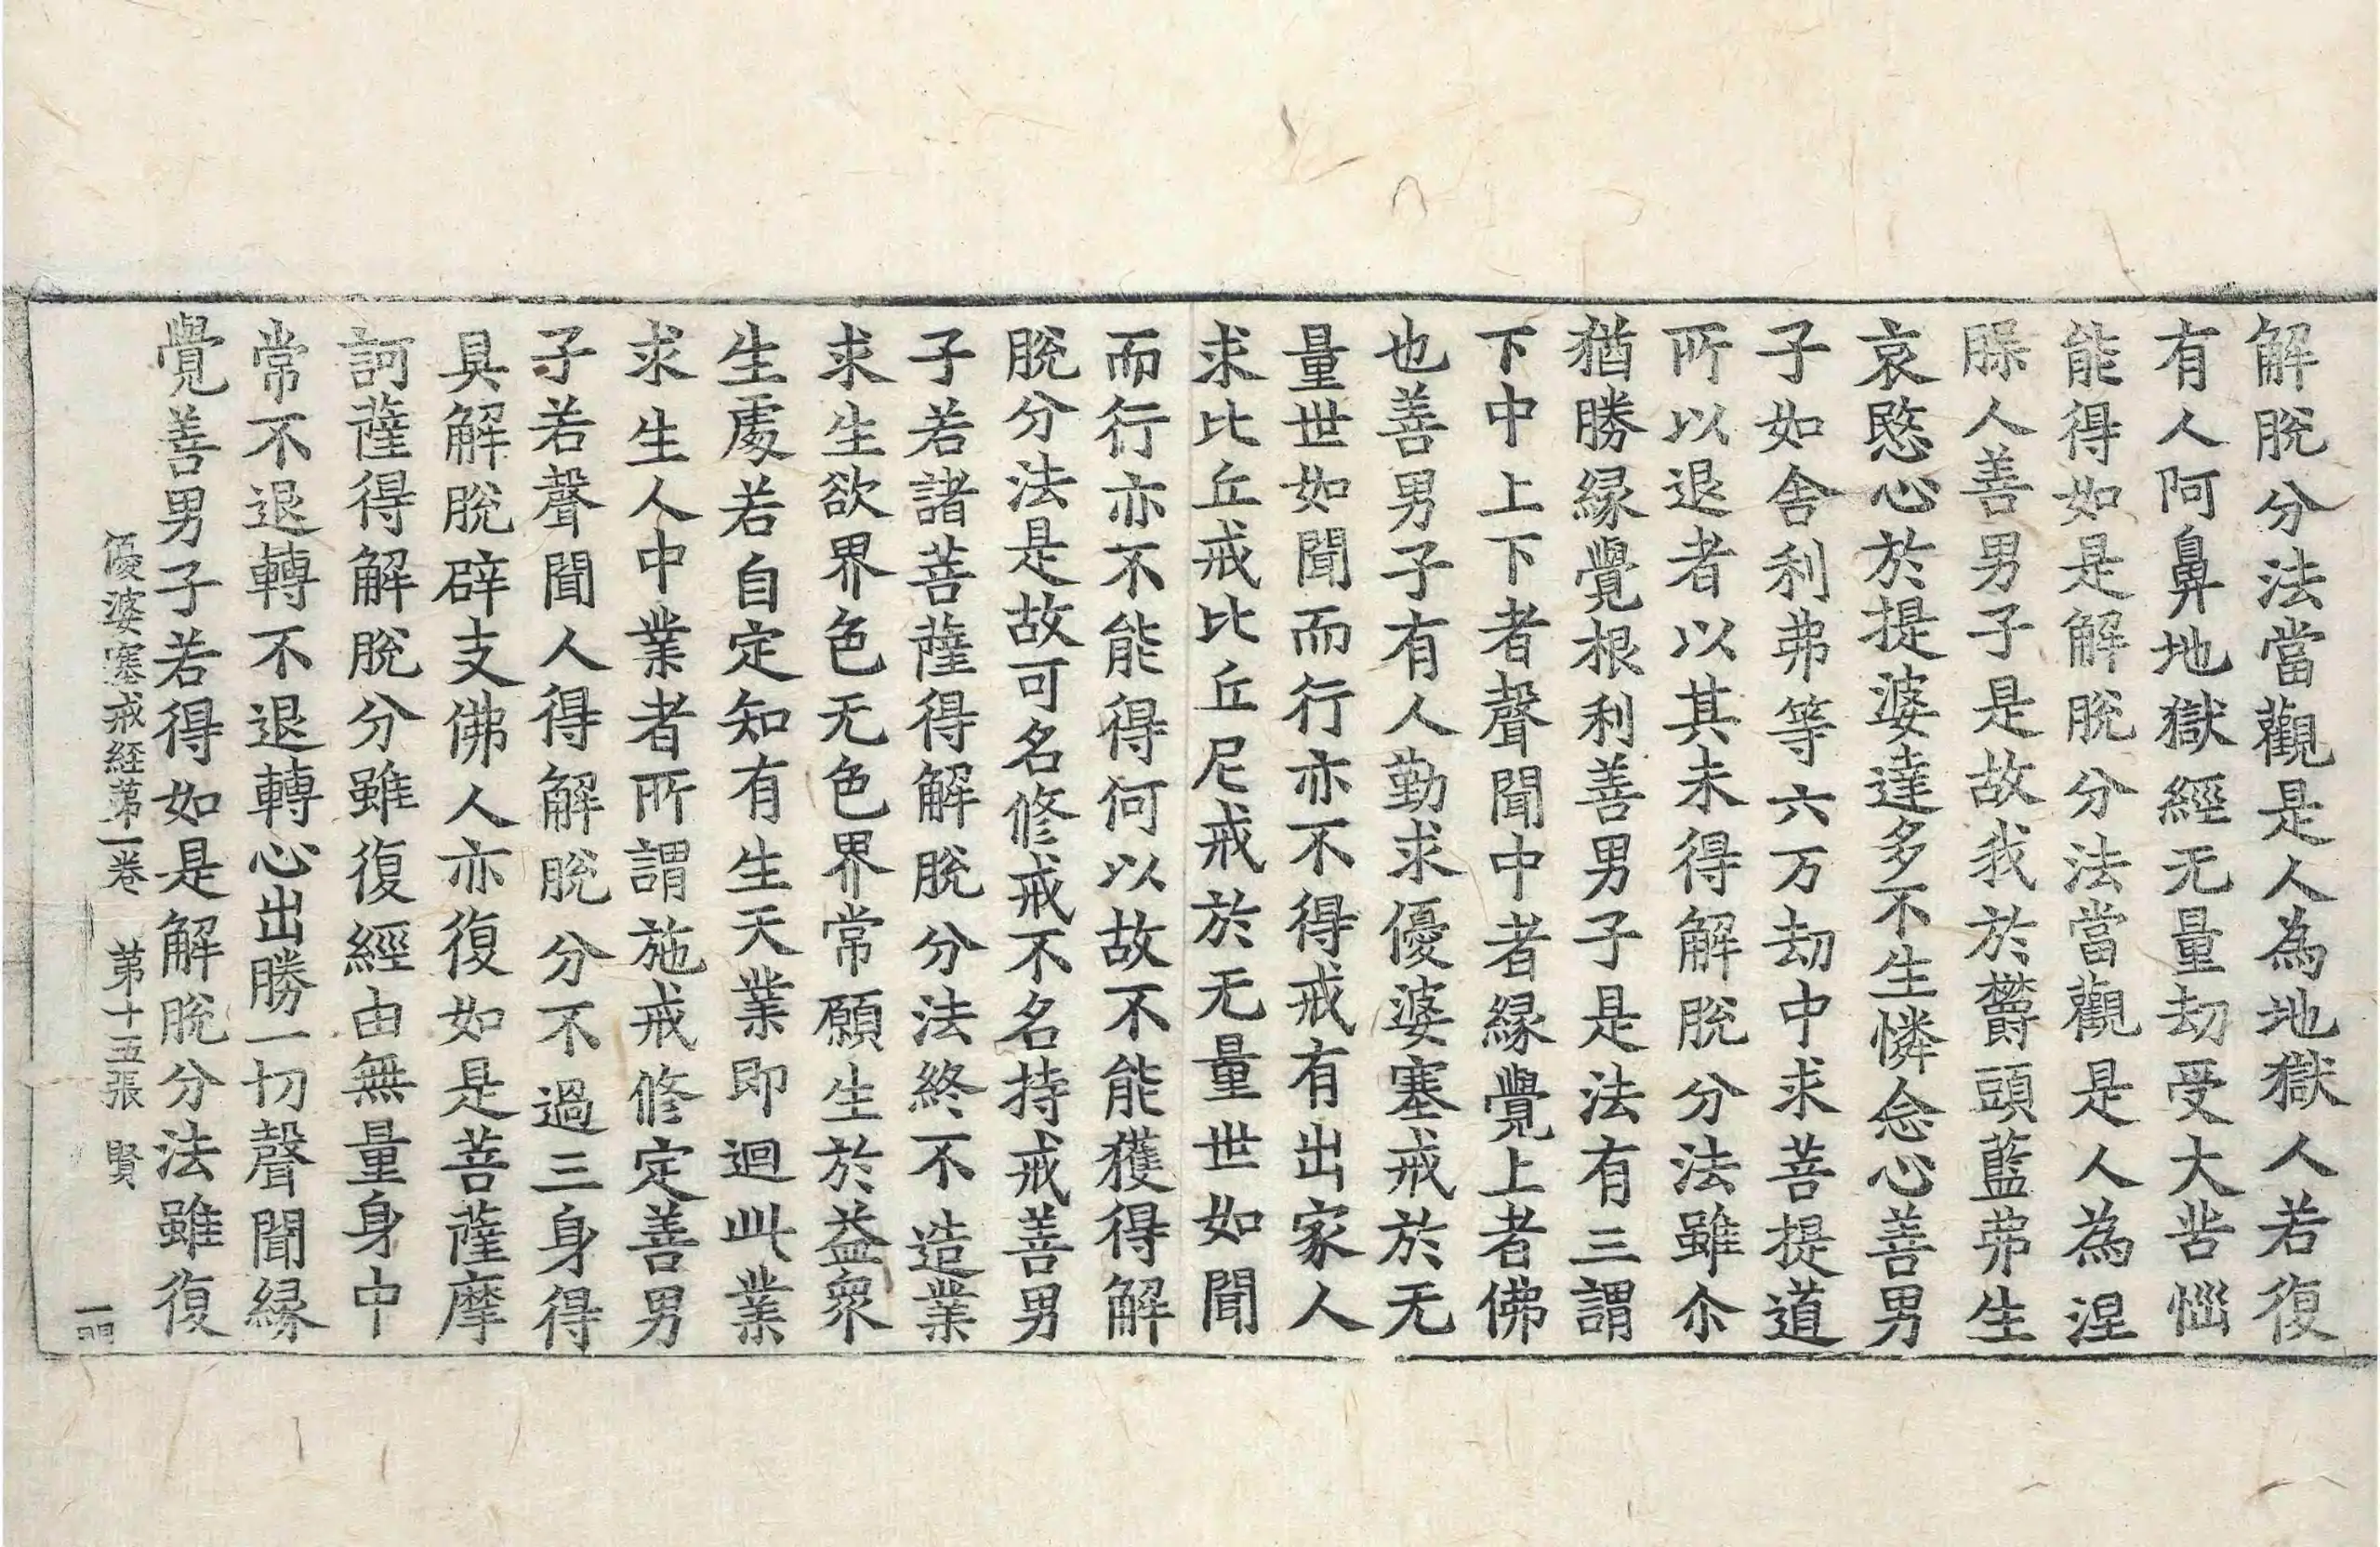 解脫分法當觀是人為地獄人若復
有人阿鼻地獄經无量劫受大苦惱
能得如是解脫分法當觀是人為涅
槃人善男子是故我於欝頭藍弗生
哀愍心於提婆達多不生憐念心善男
子如舍利弗等六万劫中求菩提道
所以退者以其未得解脫分法雖尒
猶勝緣覺根利善男子是法有三謂
下中上下者聲聞中者緣覺上者佛
也善男子有人勤求優婆塞戒於无
量世如聞而行亦不得戒有出家人
求比丘戒比丘尼戒於无量世如聞
而行亦不能得何以故不能獲得解
脫分法是故可名修戒不名持戒善男
子若諸菩薩得解脫分法終不造業
求生欲界色无色界常願生於益衆
生處若自定知有生天業即迴此業
求生人中業者所謂施戒修定善男
子若聲聞人得解脫分不過三身得
具解脫辟支佛人亦復如是菩薩摩
訶薩得解脫分雖復經由無量身中
常不退轉不退轉心出勝一切聲聞緣
覺善男子若得如是解脫分法雖復
優婆塞戒経苐一卷 苐十五張 賢